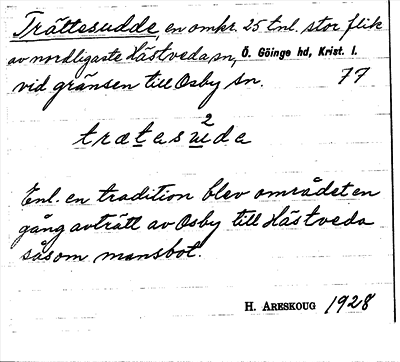 Trättesudde, en omkr. 25 tnl. stor flik
av nordligaste Hästveda sn, Ö. Göinge hd, Krist. l.
vid gränsen till Osby sn. 77
2
trætasuda
Enl. en tradition blev området en
gång avträtt av Osby till Hästveda
såsom mansbot.
H. ARESKOUG 1928